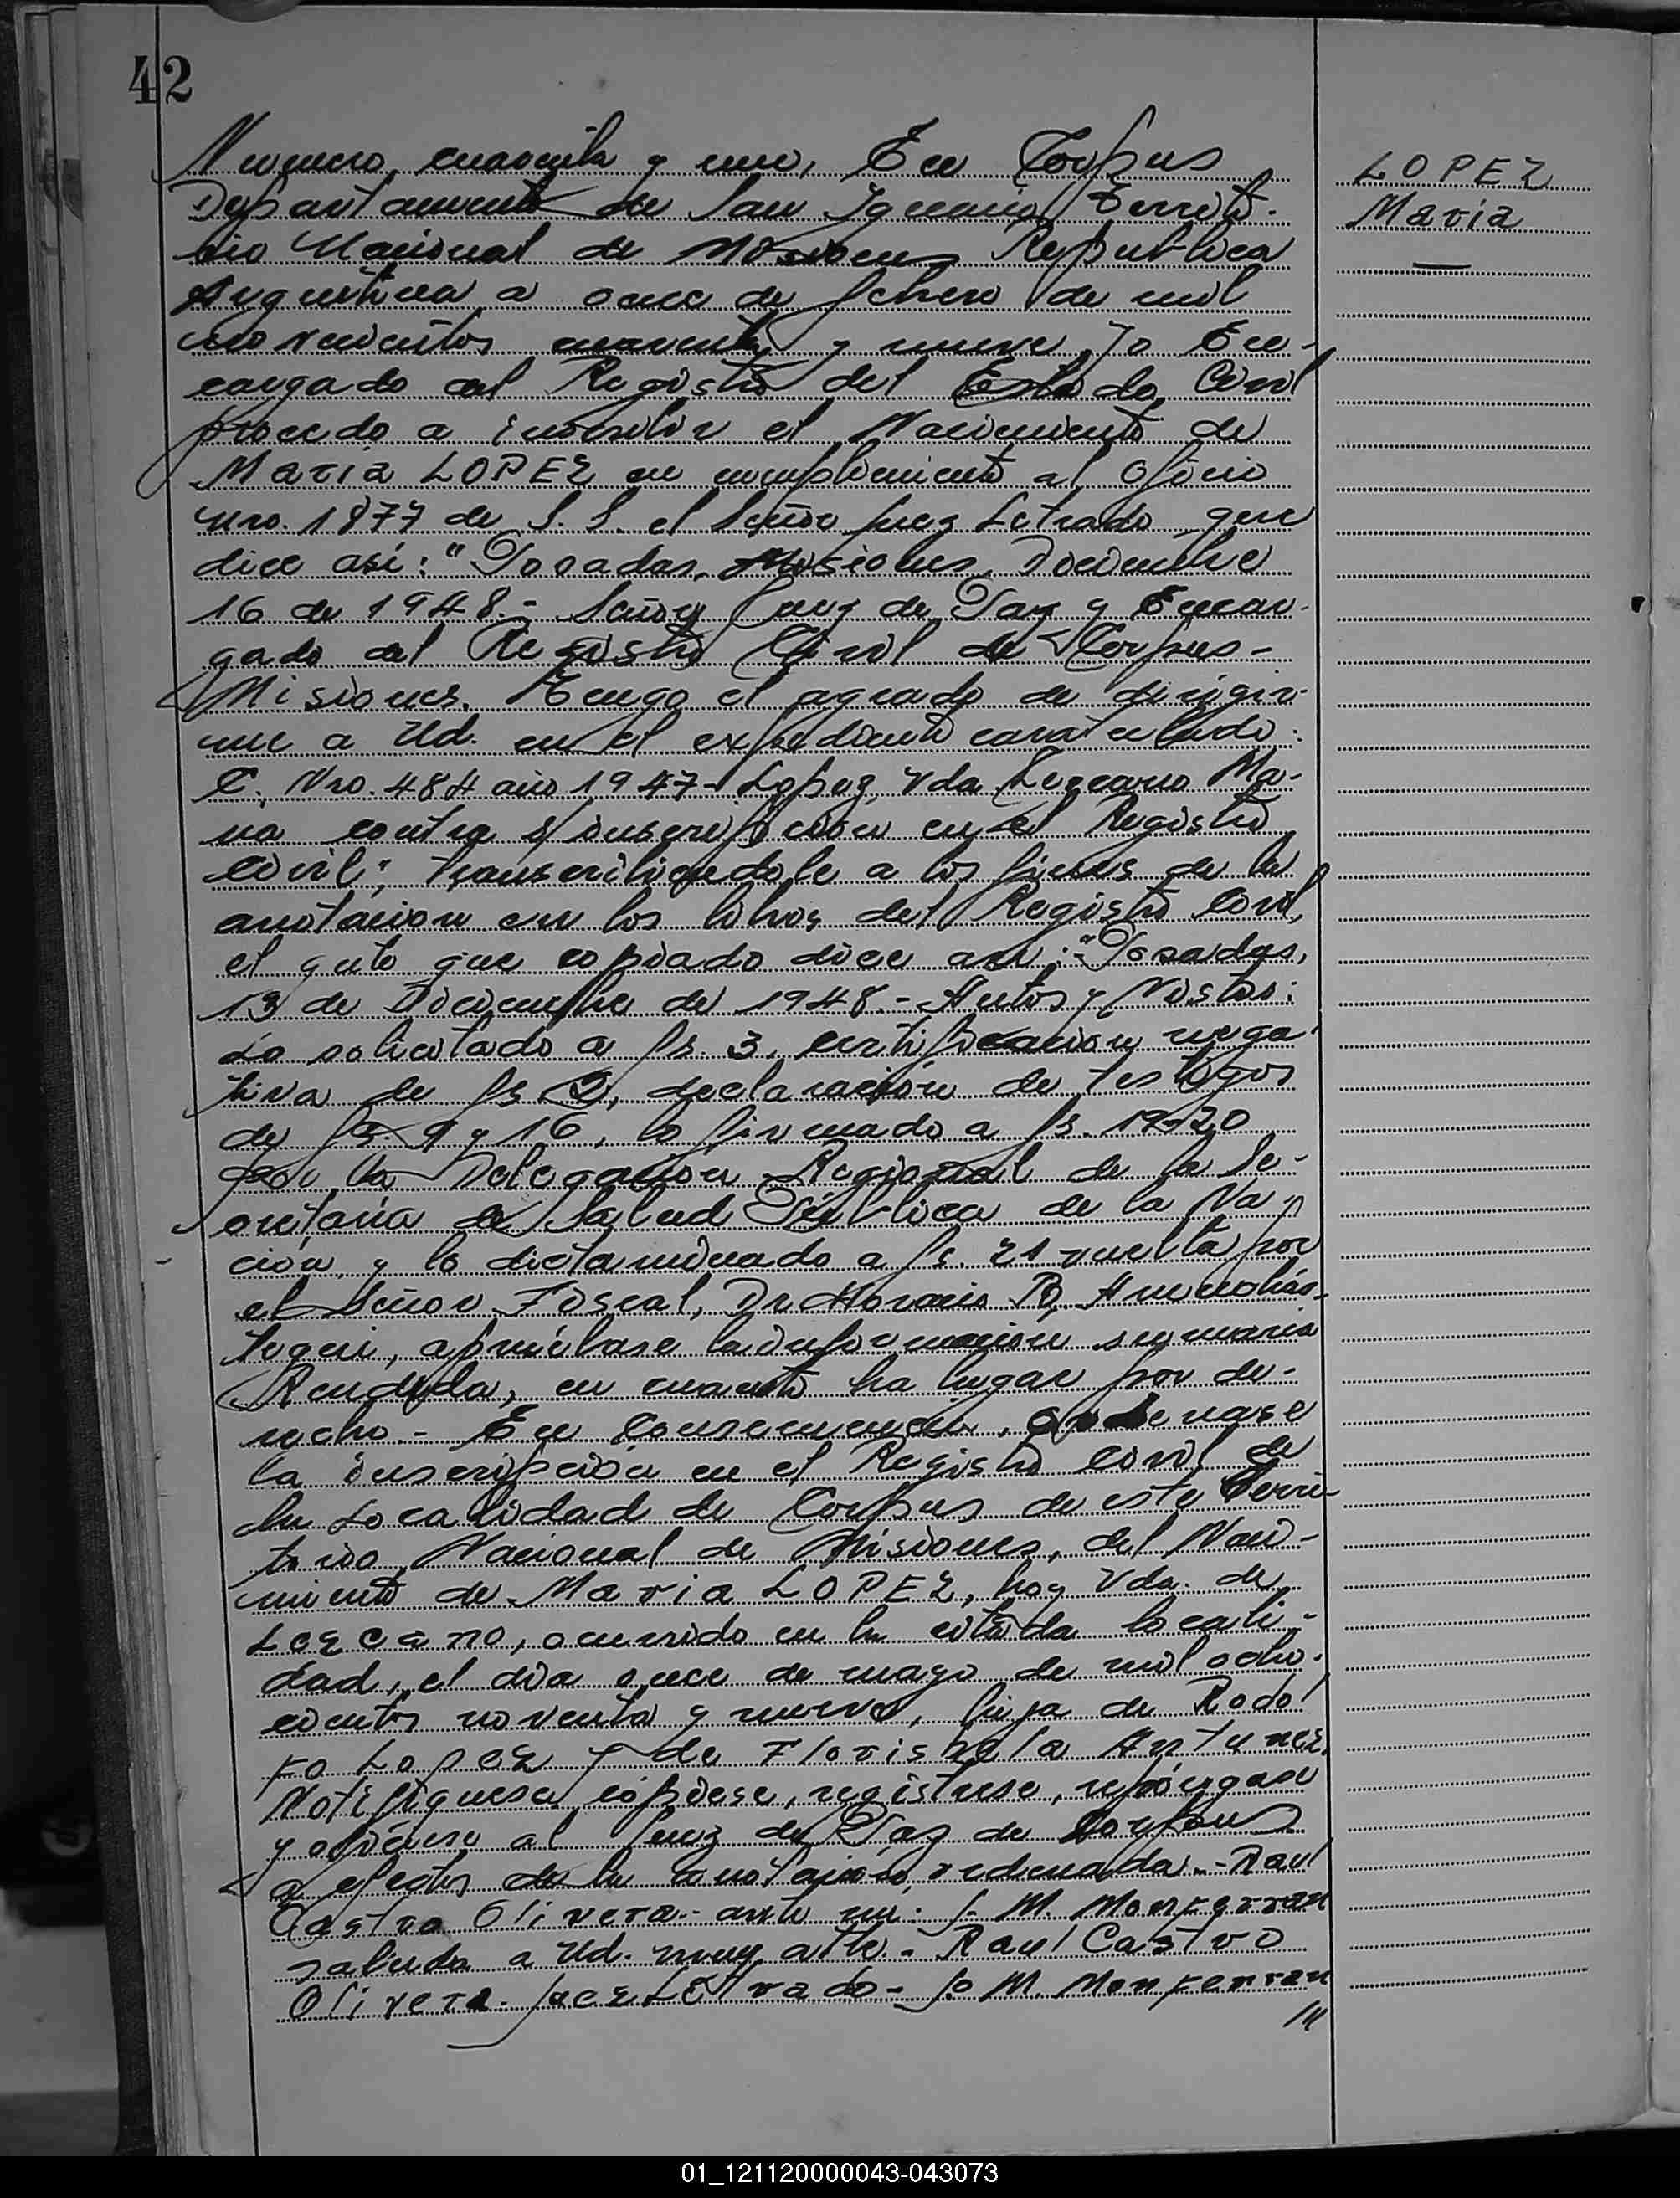 42
Numero cuarenta y uno, En Corpus
Departamento de San Ignacio Territo-
rio Nacional de Misiones Republica
Argentina a once de febrero de mil
novecientos cuarenta y nueve, Yo En-
cargado del Registro del Estado Civil
procedo a inscribir el Nacimiento de
Maria LOPEZ en cumplimiento al Oficio
nro. 1877 de S. S. el Señor Juez Letrado que
dice así: "Posadas, Misiones, Diciembre
16 de 1948.- Señor Juez de Paz y Encar-
gado del Registro Civil de Corpus-
Misiones. Tengo el agrado de dirigir-
me a Ud. en el expediente caratulado:
C. Nro. 484 año 1947- Lopez, Vda Lezcano Ma-
ria contra s/inscripcion en el Registro
Civil", transcribiendole a los fines de la
anotacion en los libros del Registro Civil,
el auto que copiado dice asi: "Posadas,
13 de Diciembre de 1948.- Autos y Vistos:
Lo solicitado a fs. 3, certificacion nega-
tiva de fs 2, declaración de testigos
de fs. 9 y 16, lo firmado a fs. 19-20
por la Delegacion Regional de la Se-
cretaria de Salud Pública de la Na-
ción, y lo dictaminado a fs. 21 vuelta por
el Señor Fiscal, Dr Horacio
apruébase la informacion sumaria
Rendida, en cuanto ha lugar por de-
recho.- En Consecuencia, ordenase
la inscripción en el Registro Civil de
la Localidad de Corpus de este Terri-
torio Nacional de Misiones, del Naci-
miento de Maria LOPEZ, hoy Vda. de
Lezcano, ocurrido en la citada locali-
dad, el dia once de mayo de mil ocho-
cientos noventa y nueve, hija de Rodol-
fo Lopez y de Florisbela Antunez.
Notifiquese, cópiese, registrese, repóngase
y ofíciese al Juez de Paz de Corpus
a efectos de la anotación ordenada.- Raul
Castro Olivera.- ante mi: J. M. Monferran
saluda a Ud. muy atte.- Raul Castro
Olivera. Juez Letrado- J. M. Monferran
///
LOPEZ
Maria
01_121120000043-043073